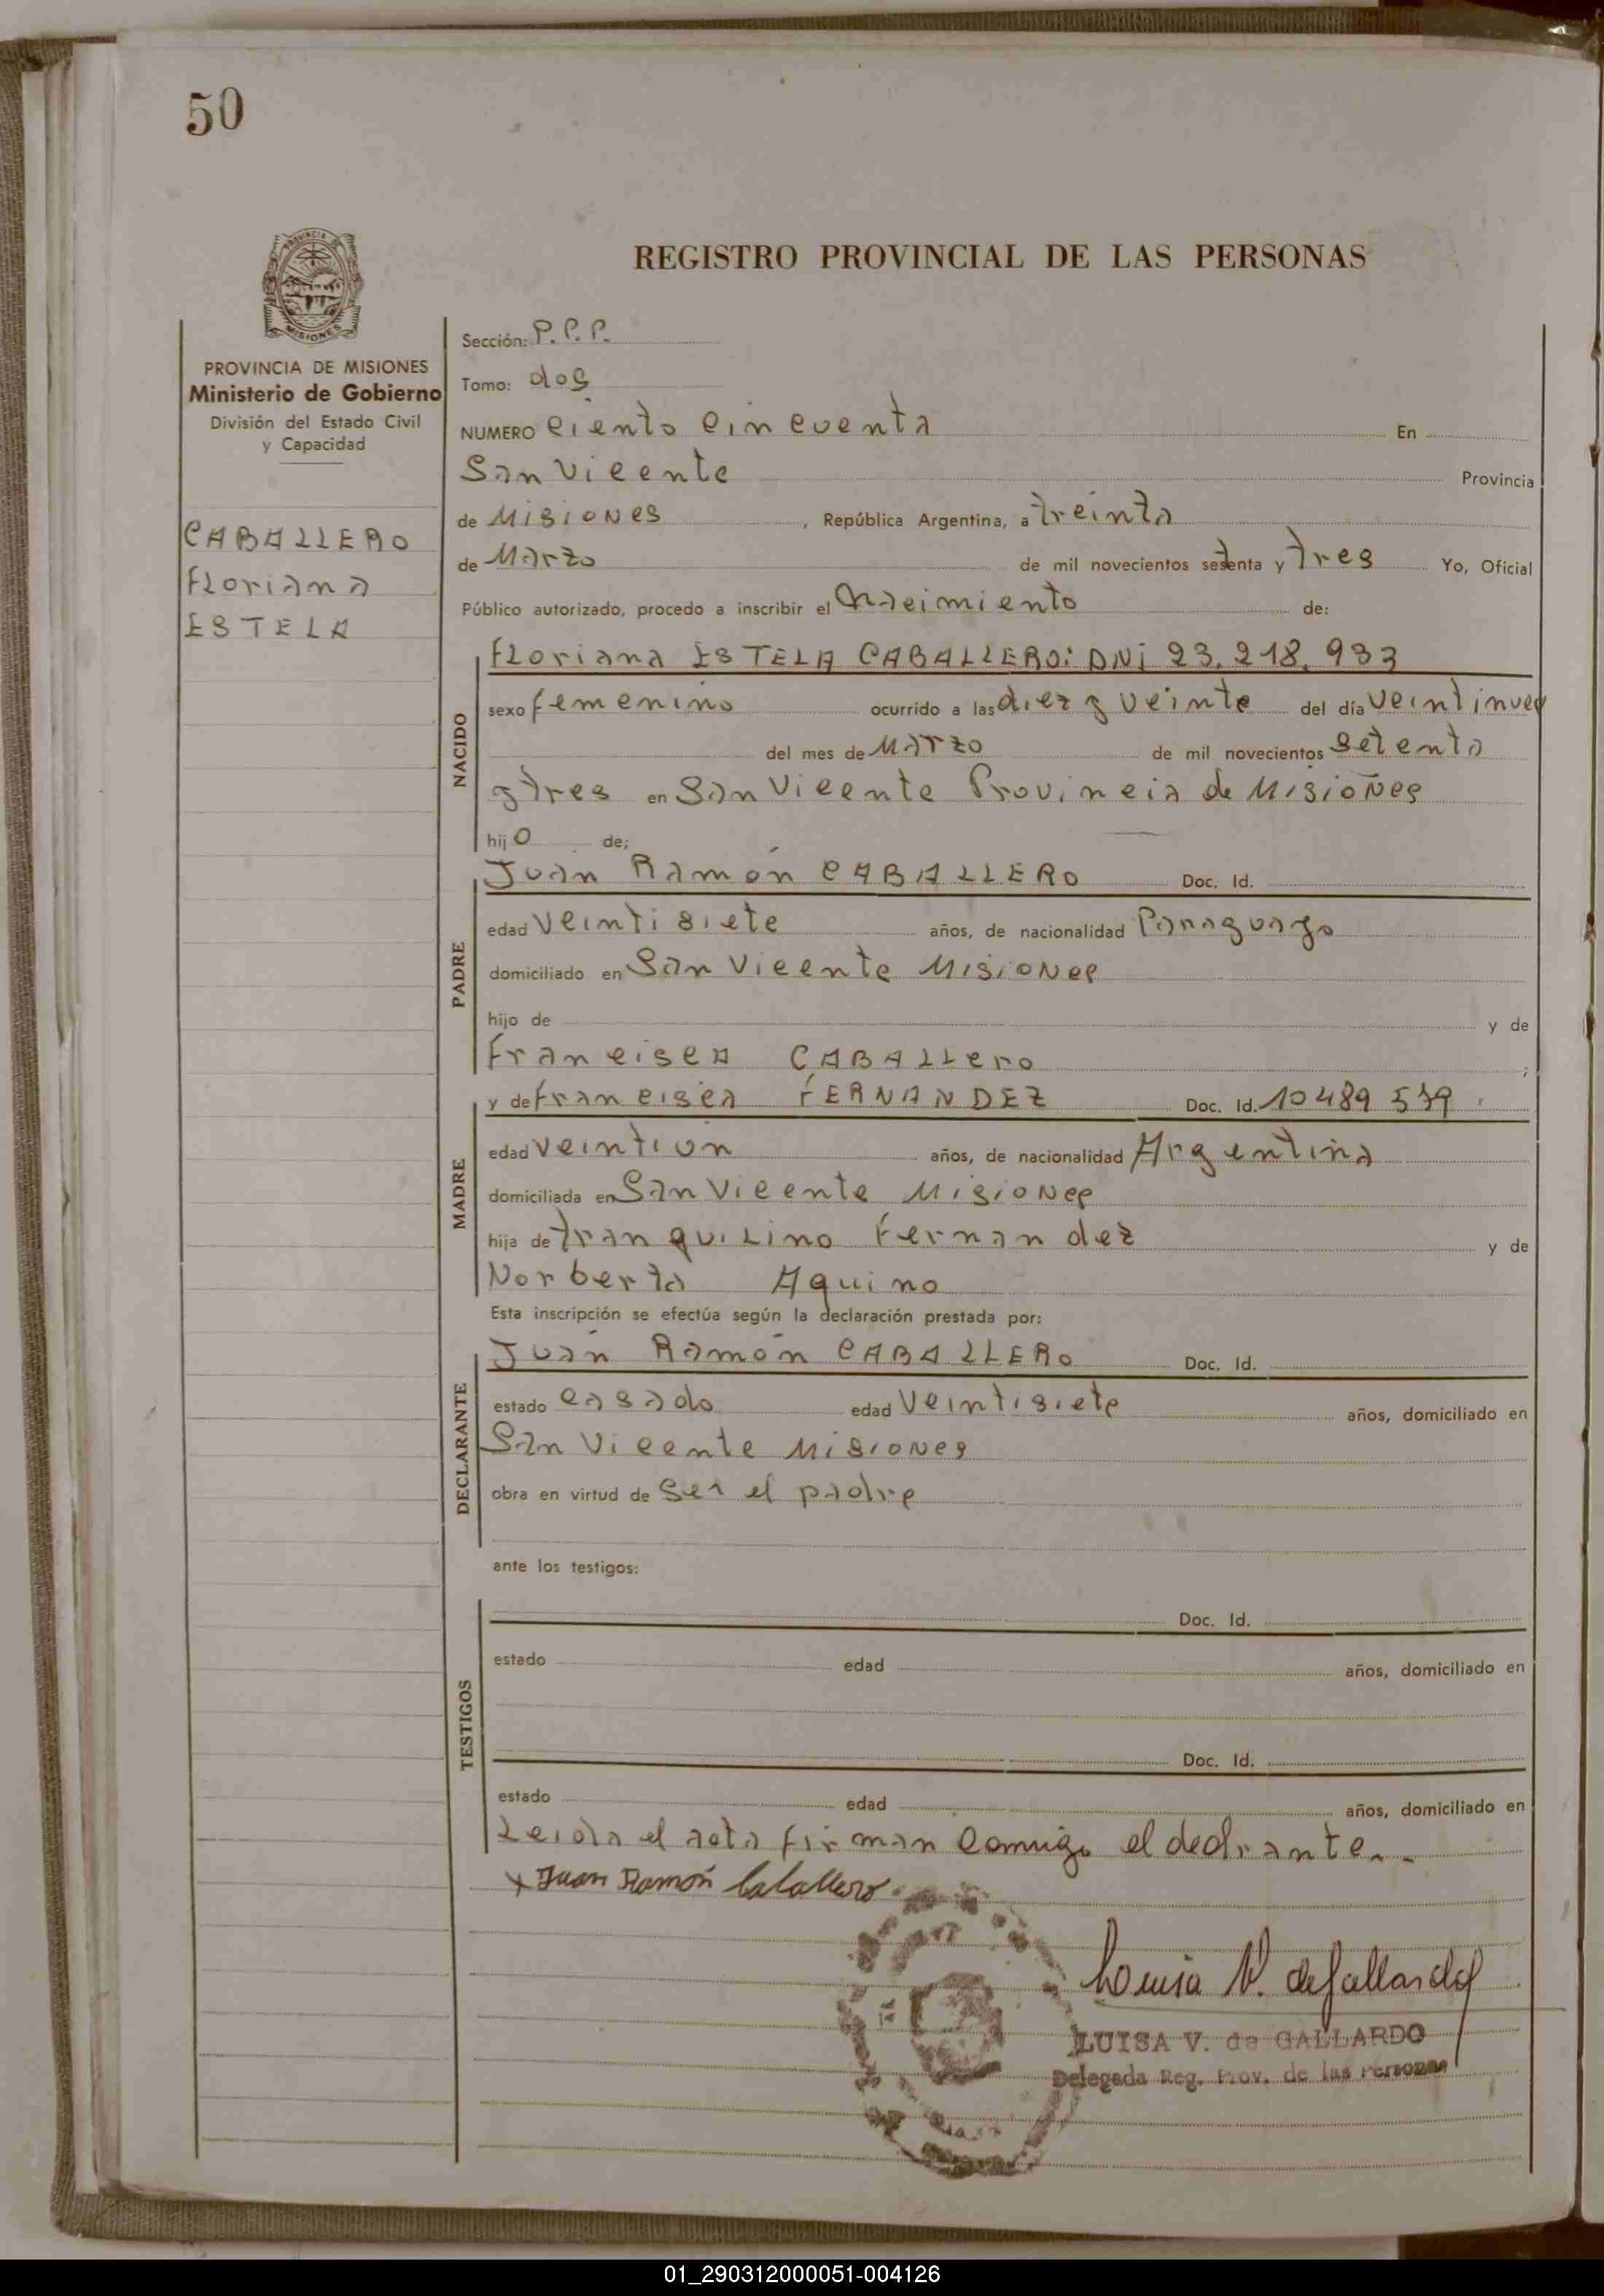 50
PROVINCIA DE
MISIONES
REGISTRO PROVINCIAL DE LAS PERSONAS
PROVINCIA DE MISIONES
Ministerio de Gobierno
División del Estado Civil
y Capacidad
CABALLERO
Floriana
ESTELA
Sección: P.P.P.
Tomo: dos
NUMERO ciento cincuenta En
San Vicente Provincia
de Misiones , República Argentina, a treinta
de Marzo de mil novecientos setenta y tres Yo, Oficial
Público autorizado, procedo a inscribir el nacimiento de:
NACIDO
Floriana ESTELA CABALLERO: DNi 23.218.933
sexo femenino ocurrido a las diez y veinte del día veintinueve
del mes de Marzo de mil novecientos setenta
y tres en San Vicente Provincia de Misiones
hijo de;
PADRE
Juan Ramón CABALLERO Doc. Id.
edad veintisiete años, de nacionalidad Paraguayo
domiciliado en San Vicente Misiones
hijo de y de
Francisca CABALLero ;
MADRE
y de Francisca FERNANDEZ Doc. Id. 10489 539
edad veintiun años, de nacionalidad Argentina
domiciliada en San Vicente Misiones
hija de tranquilino Fernandez y de
Norberta Aquino
Esta inscripción se efectúa según la declaración prestada por:
DECLARANTE
Juan Ramón CABALLERO Doc. Id.
estado casado edad veintisiete años, domiciliado en
San Vicente Misiones
obra en virtud de ser el padre
ante los testigos:
TESTIGOS
Doc. Id.
estado edad años, domiciliado en
Doc. Id.
estado edad años, domiciliado en
Leida el acta firman conmigo el declarante.-
x Juan Ramón Caballero
Louisa V. de Gallardo
LUISA V. de GALLARDO
Delegada Reg. Prov. de las Personas
01_290312000051-004126